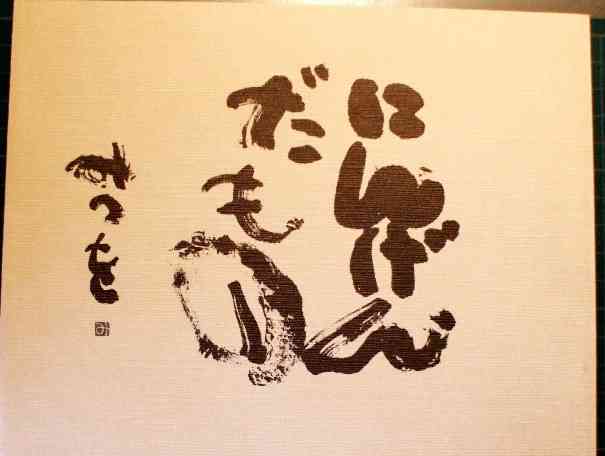 にんげん
だもの
みつを